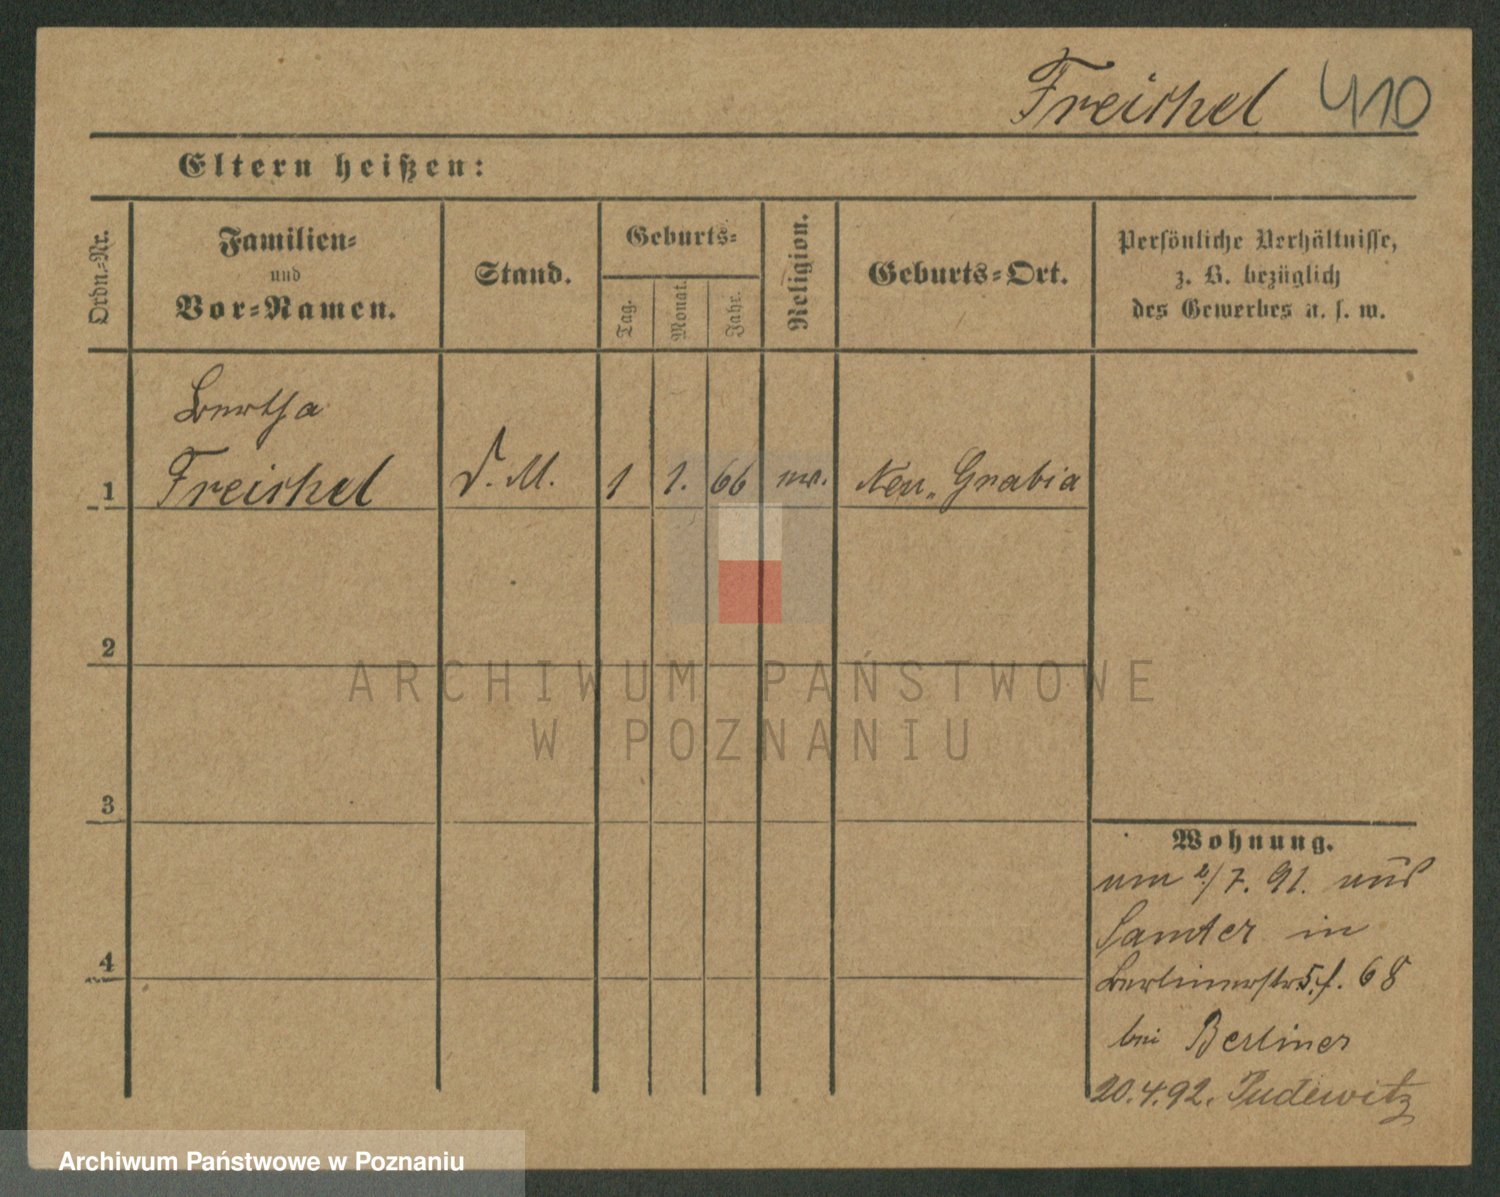 Freishel 410
Eltern heißen:
Ordn.-Nr.
Familien-
und
Vor-Namen.
Stand.
Geburts-
Tag.
Monat.
Jahr.
Religion.
Geburts-Ort.
Persönliche Verhältnisse,
z. B. bezüglich
des Gewerbes u. s. w.
Bertha
1 Freishel d. M. 1 1. 66 Neu- Grabia
2
3
4
ARCHIWUM PAŃSTWOWE
W POZNANIU
Wohnung.
/7. 91. aus
Samter in
Berlinerstr. 5. f. 68
bei Berliner
20.4.92. Pudewitz
Archiwum Państwowe w Poznaniu